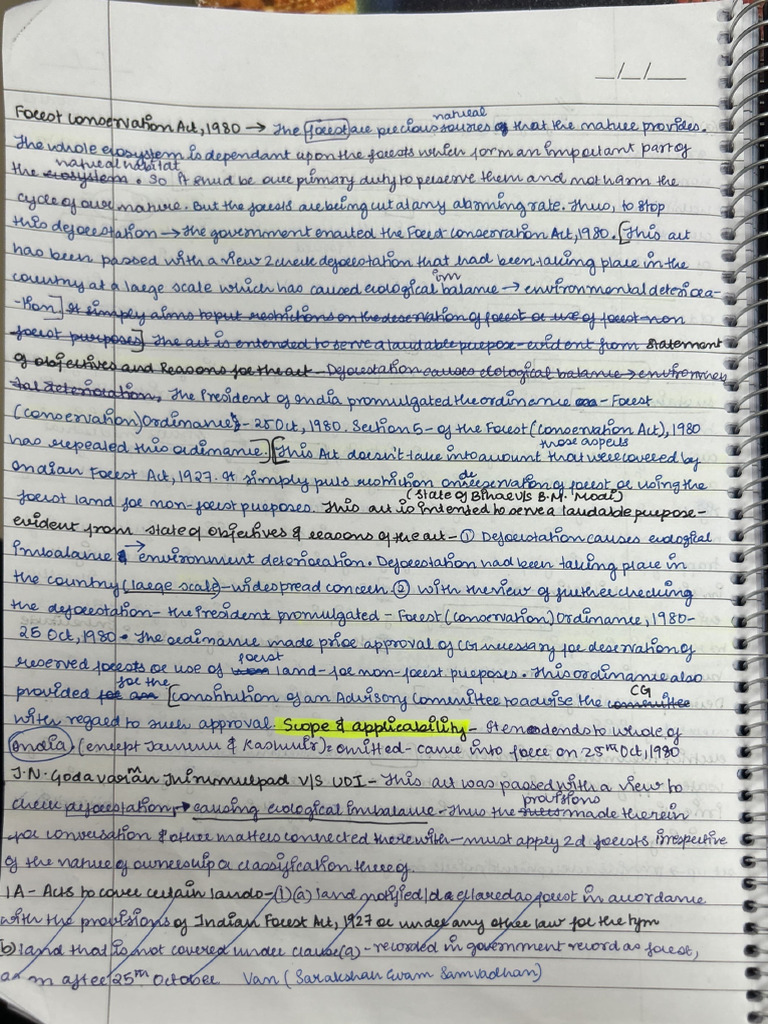 _/_/_
Forest Conservation Act, 1980 → The forest are precious natural sources of that the nature provides.
The whole ecosystem is dependant upon the forests which form an important part of
the ecosystem natural habitat. So it shud be our primary duty to preserve them and not harm the
cycle of our nature. But the forests are being cut at any alarming rate. Thus, to stop
this deforestation → the government enacted the Forest Conservation Act, 1980. [This act
has been passed with a view 2 check deforestation that had been taking place in the
country at a large scale which has caused ecological imbalance → environmental deteriora-
-tion] It simply aims to put restrictions on the deservation of forest or use of forest-non
forest purposes] The act is entended to serve a laudable purpose-evident from statement
of objectives and Reasons for the act - Deforestation causes ecological balance → environmen
tal deterioration, The President of India promulgated the ordinance - Forest
(Conservation) Ordinance - 25 Oct, 1980. Section 5 - of the Forest (Conservation Act), 1980
has repealed this ordinance.] [This Act doesn't take into amount those aspects that were covered by
Indian Forest Act, 1927. It simply puts restriction on deservation of forest or using the
forest land for non-forest purposes. (State of Bihar v/s B.M. Modi) This act is intended to serve a laudable purpose-
evident from state of objectives & reasons of the act - ① Deforestation causes ecological
imbalance → environment deterioration. Deforestation had been taking place in
the country (large scale) - widespread concern ② with the view of further checking
the deforestation - the President promulgated - Forest (Conservation) Ordinance, 1980-
25 Oct, 1980. The ordinance made prior approval of CG necessary for deservation of
reserved forests or use of forest land - for non-forest purposes. This ordinance also
provided for the [constitution of an Advisory Committee to advise the committee CG
with regard to such approval. Scope & applicability - It enendends to whole of
India (except Jammu & Kashmir) = omitted - came into force on 25th Oct, 1980
J.N. Godavaramn Thirummulpad V/S UOI - This act was passed with a view to
check deforestation, → causing ecological imbalance - Thus the provisions made therein
for conversation & other matters connected therewith - must apply 2 d forests irrespective
of the nature of ownership or classification there of.
1A - Acts to cover certain lands - (1)(a) land notified/declared as forest in accordance
with the provisions of Indian Forest Act, 1927 or under any other law for the tym
(b) land that is not covered under clause (a) - recorded in government record as forest,
as on after 25th October Van (Sarakshan Evam Samvadhan)